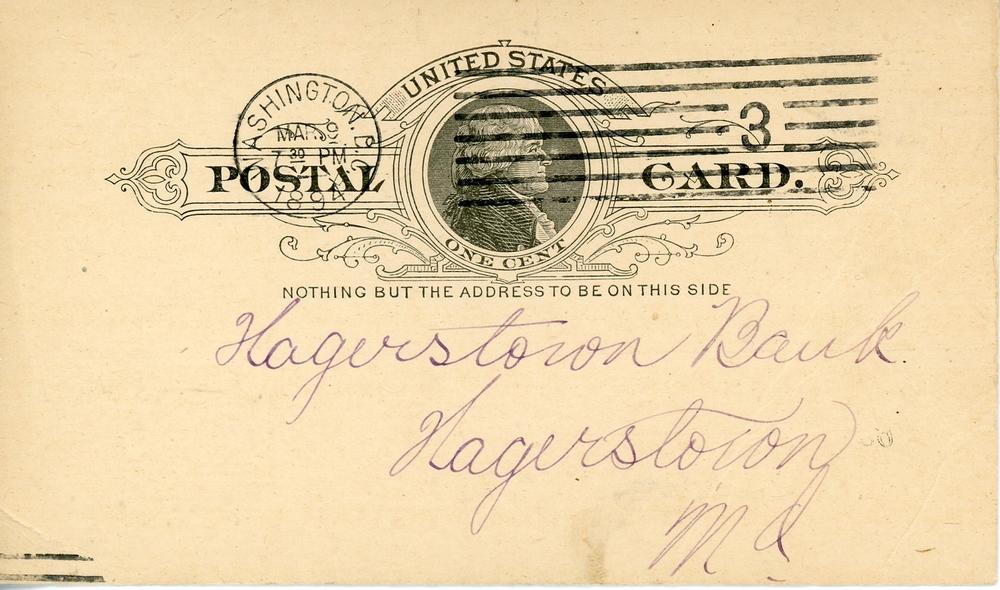 UNITED STATES
POSTAL CARD.
ONE CENT
WASHINGTON, D.C.
MAR 9
7 30 PM
1894
3
NOTHING BUT THE ADDRESS TO BE ON THIS SIDE
Hagerstown Bank.
Hagerstown
Md